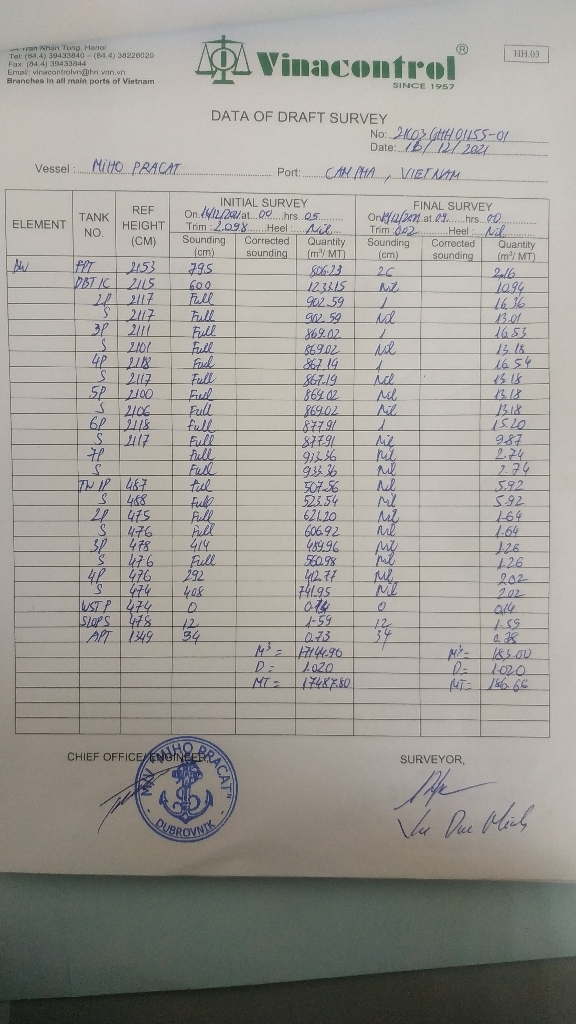 Tran Nhan Tong, Hanoi
Tel: (84.4) 39433840 – (84.4) 38226020
Fax: (84.4) 39433844
Email: vinacontrolvn@hn.vnn.vn
Branches in all main ports of Vietnam
Vinacontrol®
SINCE 1957
HH.03
DATA OF DRAFT SURVEY
No: 21K03GHH01155-01
Date: 16/12/2021
Vessel : MIHO PRACAT Port: CAM PHA, VIETNAM
ELEMENT TANK NO. REF HEIGHT (CM) INITIAL SURVEY FINAL SURVEY
On 14/12/2021 at 00 hrs 05 On at 09 hrs 00
Trim : 2.098 Heel : Nil Trim : 602 Heel : Nil
Sounding (cm) Corrected sounding Quantity (m³/ MT) Sounding (cm) Corrected sounding Quantity (m³/ MT)
BW FPT 2153 795 806.23 26 2.16
DBT 1C 2115 600 1233.15 Nil 10.94
2P 2117 Full 902.59 1 16.36
S 2117 Full 902.59 Nil 13.01
3P 2111 Full 869.02 1 16.53
S 2101 Full 869.02 Nil 13.18
4P 2118 Full 867.19 1 16.54
S 2117 Full 867.19 Nil 13.18
5P 2100 Full 869.02 Nil 13.18
S 2106 Full 869.02 Nil 13.18
6P 2118 Full 877.91 1 15.20
S 2117 Full 877.91 Nil 9.87
7P Full 933.36 Nil 2.74
S Full 933.36 Nil 2.74
TW 1P 487 Full 507.56 Nil 5.92
S 488 Full 523.54 Nil 5.92
2P 475 Full 621.20 Nil 1.64
S 476 Full 606.92 Nil 1.64
3P 478 414 489.96 Nil 1.26
S 476 Full 560.98 Nil 1.26
4P 476 292 412.77 Nil 2.02
S 474 408 741.95 Nil 2.02
WST P 474 0 0.14 0 0.14
SLOP S 478 12 1.59 12 1.59
APT 1349 34 0.73 34 0.78
M³ = 17144.90 M³ = 183.00
D = 1.020 D = 1.020
MT = 17487.80 MT = 186.66
CHIEF OFFICE/ENGINEER, SURVEYOR,
M/V "MIHO PRACAT"
DUBROVNIK
Vu Duc Minh